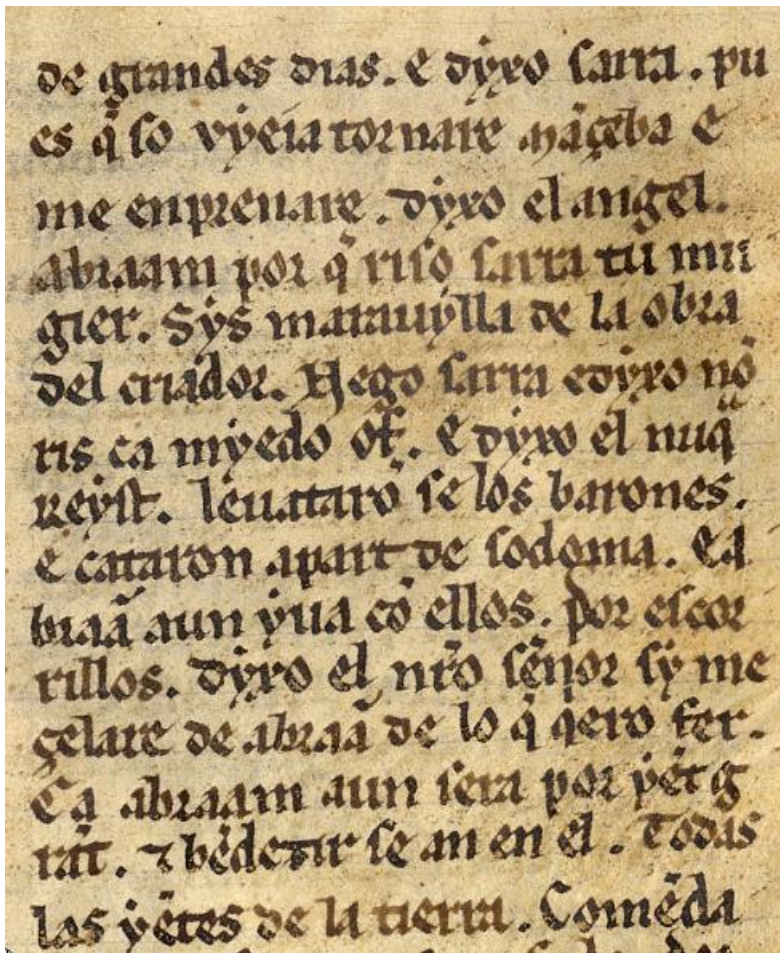 de grandes dias. e dyxo sarra. pu
es q̃ so vyeia tornare mãçeba e
me enprenare. dyxo el angel.
abraam por q̃ riso sarra tu mu
gier. Sy es marauylla de la obra
del criador. Nego sarra e dyxo nõ
ris ca myedo of. e dyxo el nuq̃
reyst. leuãtarõ se los barones.
e cataron a part de sodoma. e a
braã aun yua cõ ellos. por escor
rillos. dyxo el nr̃o señor sy me
çelare de abraã de lo q̃ q̃ero fer.
Ca abraam aun sera por yẽt g
rãt. ⁊ bẽdezir se an en el. Todas
las yẽtes de la tierra. Comẽda